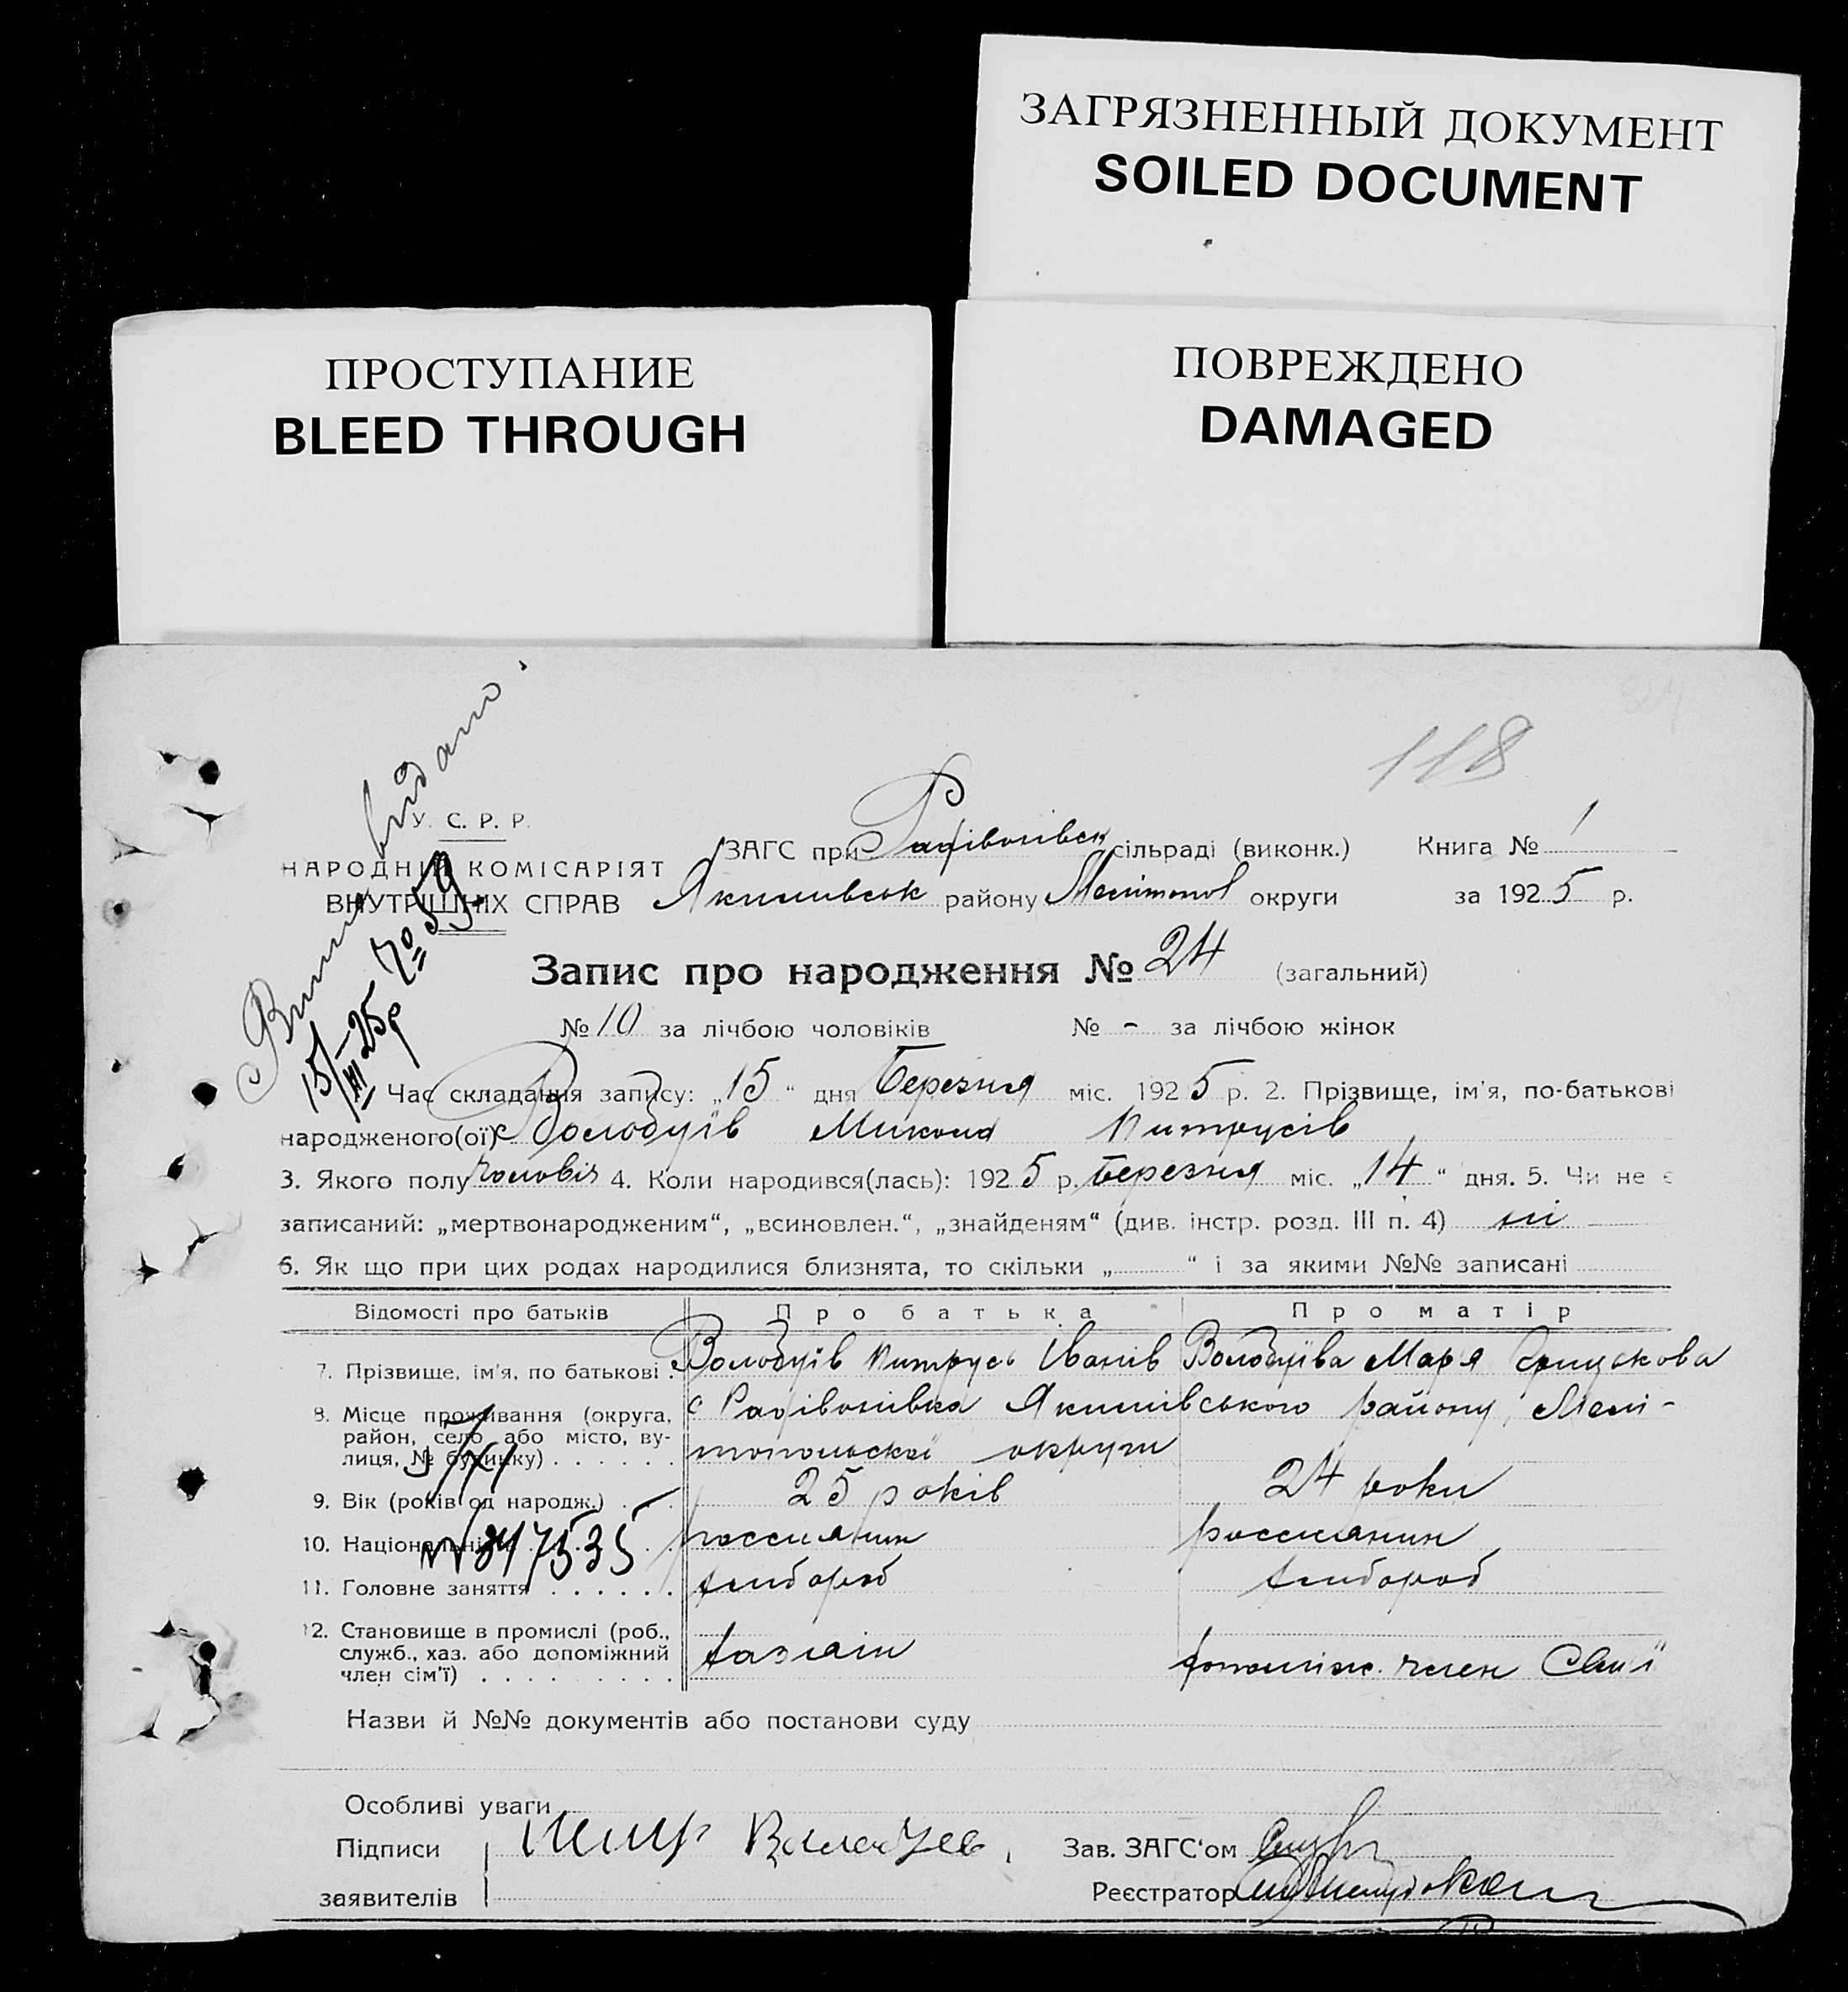 ЗАГРЯЗНЕННЫЙ ДОКУМЕНТ
SOILED DOCUMENT
ПРОСТУПАНИЕ
BLEED THROUGH
ПОВРЕЖДЕНО
DAMAGED
118
У. С. Р. Р.
НАРОДНІЙ КОМІСАРІЯТ
ВНУТРІШНІХ СПРАВ
видано
№ 59
15/XII-25р
ЗАГС при Радівонівск сільраді (виконк.) Книга № 1
Якимівськ району Мелітопол округи за 1925 р.
Запис про народження № 24 (загальний)
№ 10 за лічбою чоловіків № - за лічбою жінок
Час складання запису: „15“ дня Березня міс. 1925 р. 2. Прізвище, ім'я, по-батькові
народженого(ої) Володуїв Микола Питрусів
3. Якого полу чоловіч 4. Коли народився(лась): 1925 р. березня міс. „14“ дня. 5. Чи не є
записаний: „мертвонародженим“, „всиновлен.“, „знайденям“ (див. інстр. розд. III п. 4) ні
6. Як що при цих родах народилися близнята, то скільки „ “ і за якими №№ записані
Відомості про батьків Про батька Про матір
7. Прізвище, ім'я, по батькові . Володуїв Питрусь Іванів Володуїва Мар'я
8. Місце проживання (округа, район, село або місто, вулиця, № будинку) . . . . . . с Радівонівка Якимівського району, Мелі-
топольскої округи
9. Вік (років од народж.) . . . 25 років 24 роки
10. Національність россиянин россиянин
11. Головне заняття . . . . . . хлібороб хлібороб
12. Становище в промислі (роб., служб., хаз. або допоміжний член сім'ї) . . . . . . . . . хазяїн допоміж. член Сем'ї
№ 347535
Назви й №№ документів або постанови суду
Особливі уваги
Підписи Зав. ЗАГС'ом
заявителів Реєстратор